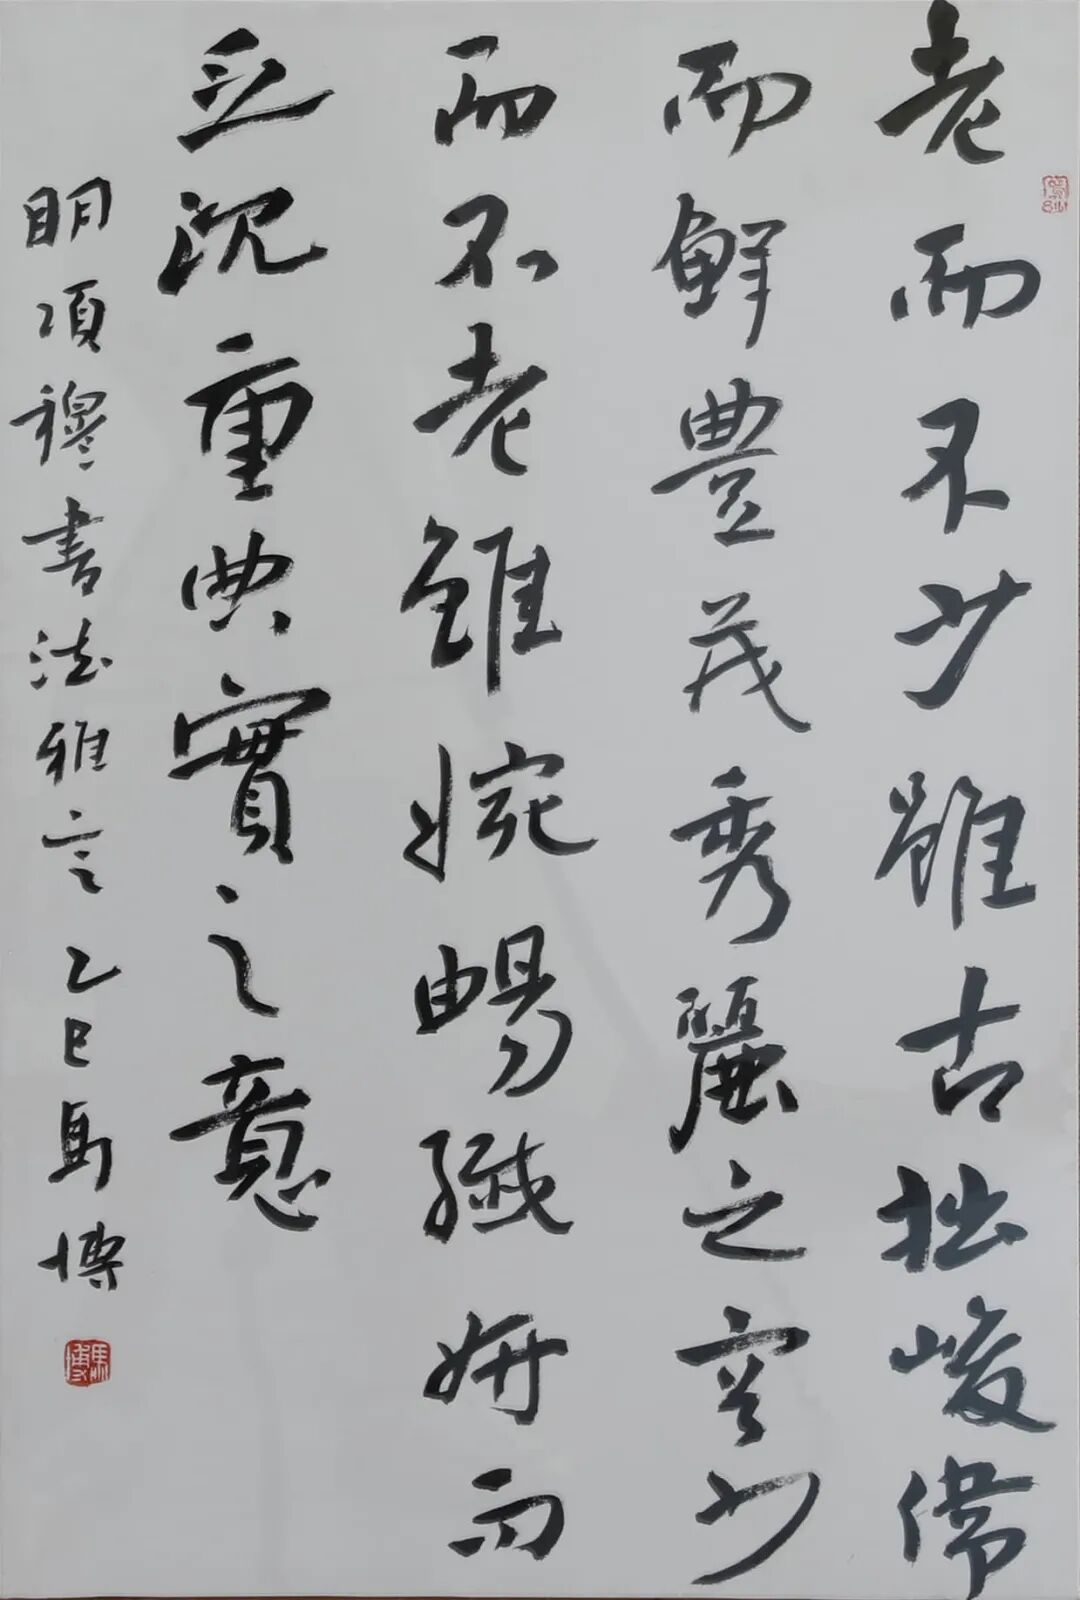 老而不少雖古拙峻偉
而鮮豐茂秀麗之容少
而不老雖婉暢纖妍而
乏沈重典實之意
明項穆書法雅言乙巳馬博
馬博